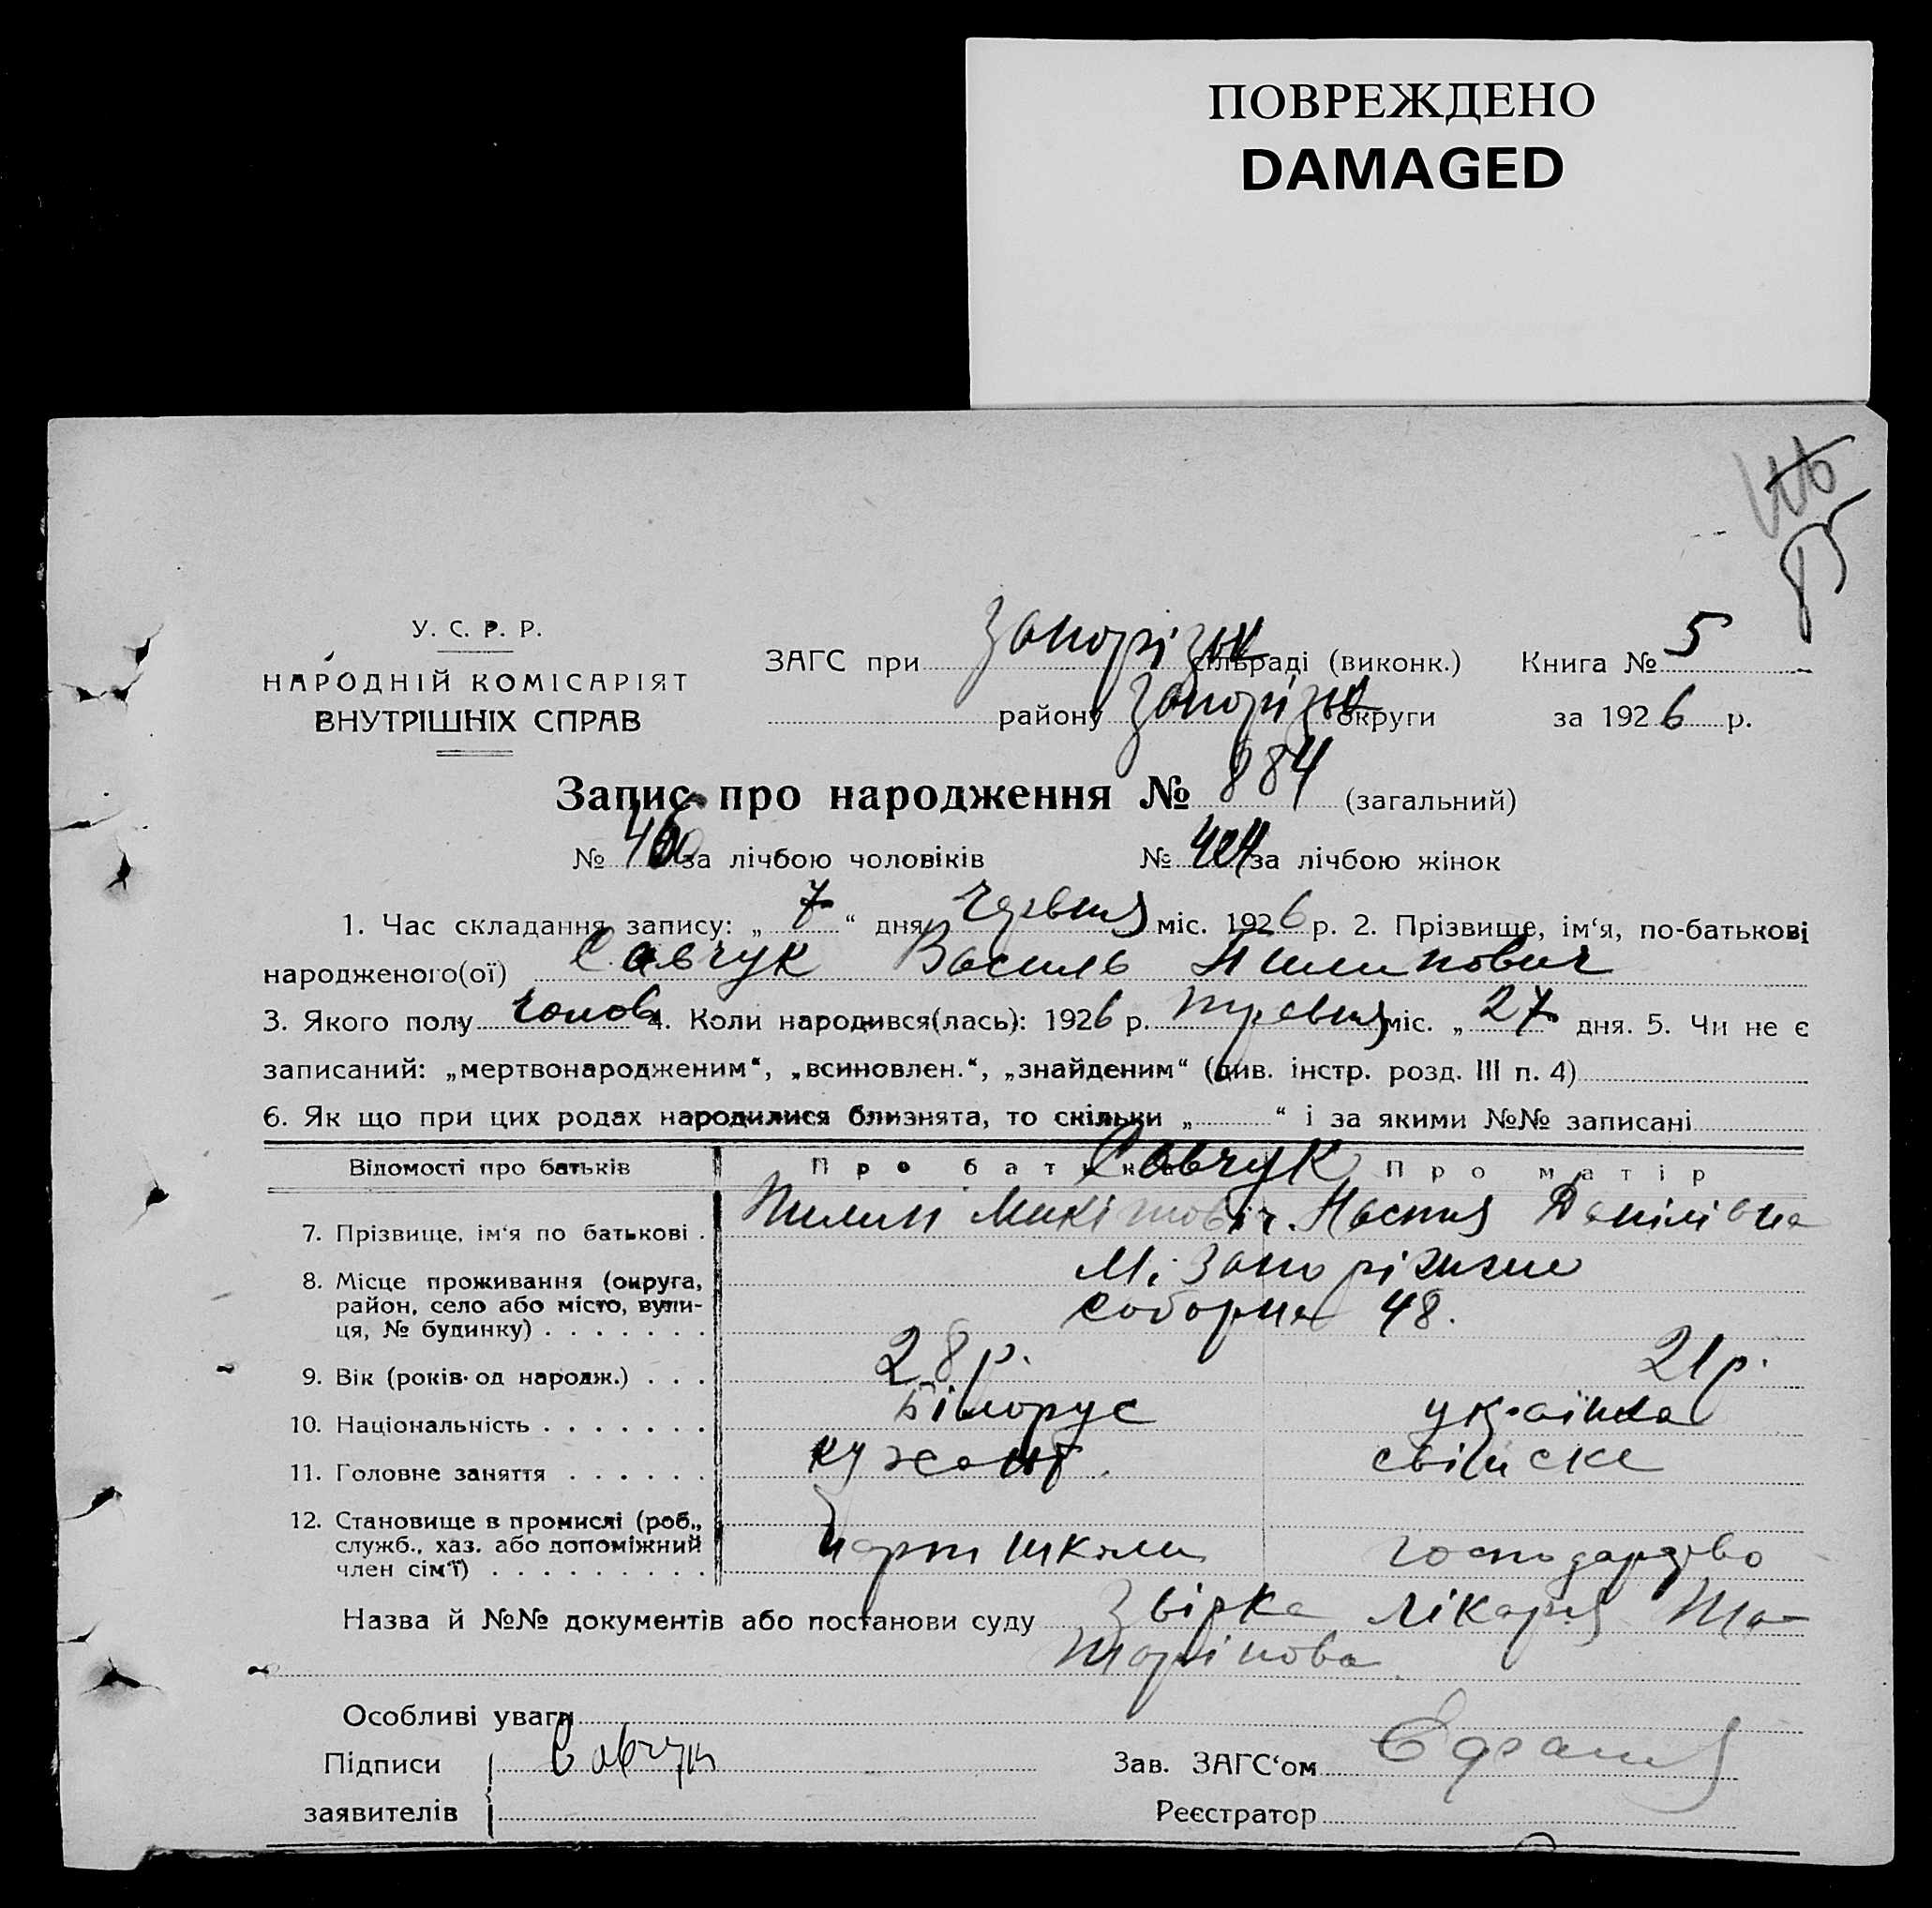 ПОВРЕЖДЕНО
DAMAGED
85
У. С. Р. Р.
НАРОДНІЙ КОМІСАРІЯТ
ВНУТРІШНІХ СПРАВ
ЗАГС при Запорізьк сільраді (виконк.) Книга № 5
району Запорізьк округи за 1926 р.
Запис про народження № 884 (загальний)
№ 460 за лічбою чоловіків № 424 за лічбою жінок
1. Час складання запису: „ 7 “ дня червня міс. 1926 р. 2. Прізвище, ім‘я, по-батькові
народженого(ої) Савчук Василь Пилипович
3. Якого полу чолов 4. Коли народився(лась): 1926 р. травня міс. „ 27 дня. 5. Чи не є
записаний: „мертвонародженим“, „всиновлен.“, „знайденим“ (див. інстр. розд. III п. 4)
6. Як що при цих родах народилися близнята, то скільки „ “ і за якими №№ записані
Відомості про батьків Про батька Савчук Про матір
7. Прізвище, ім‘я по батькові . Пилип Микітовіч. Настя Данілівна
8. Місце проживання (округа, М. Запоріжжє
район, село або місто, вули- Соборна 48.
ця, № будинку) . . . . . . .
9. Вік (років од народж.) . . . 28 р. 21 р.
10. Національність . . . . . . . Білорус українка
11. Головне заняття . . . . . . свійске
12. Становище в промислі (роб.,
служб., хаз. або допоміжний Парт школи господарство
член сім‘ї) . . . . . . . . .
Назва й №№ документів або постанови суду Звірка лікаря Та-
тарінова
Особливі уваги
Підписи Савчук Зав. ЗАГС‘ом
заявителів Реєстратор